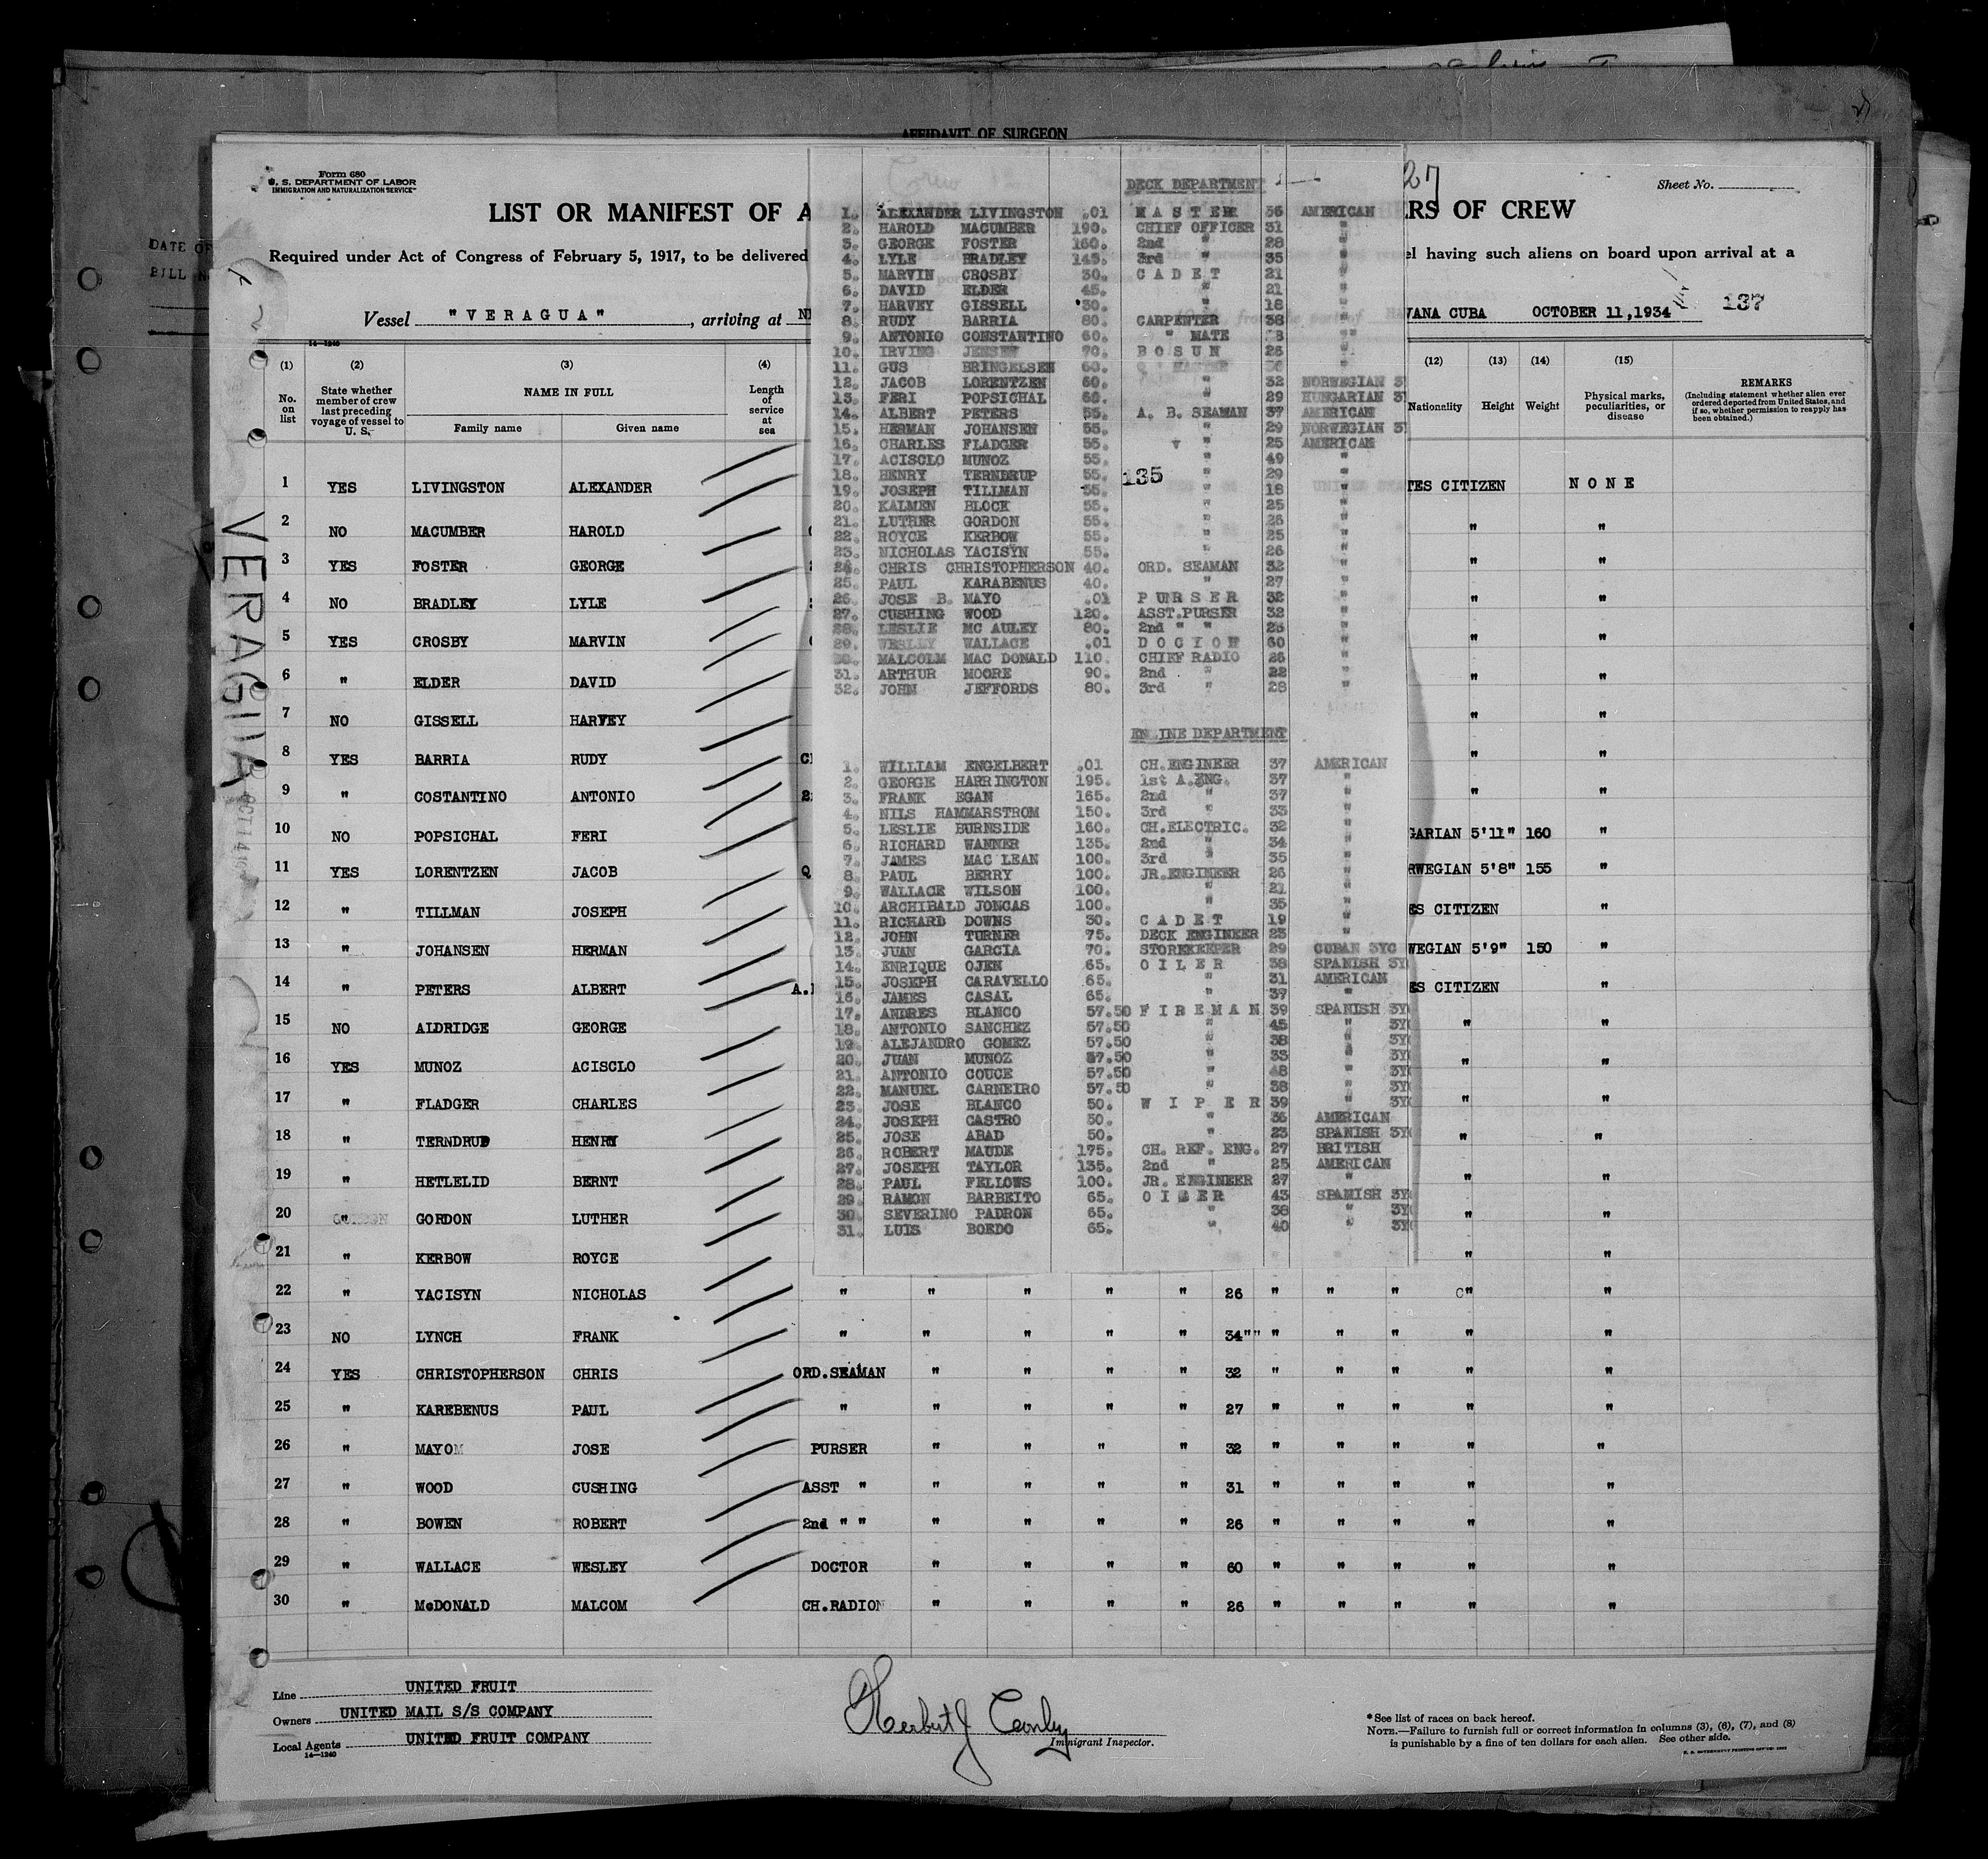 AFFIDAVIT OF SURGEON
DATE OF
BILL
Form 680
U. S. DEPARTMENT OF LABOR
IMMIGRATION AND NATURALIZATION SERVICE
27
Sheet No.
LIST OR MANIFEST OF A
RS OF CREW
Required under Act of Congress of February 5, 1917, to be delivered
el having such aliens on board upon arrival at a
Vessel "VERAGUA", arriving at
VANA CUBA OCTOBER 11,1934 137
14—1240
(1) (2) (3) (4)
No. on list
State whether member of crew last preceding voyage of vessel to U. S.
NAME IN FULL
Family name Given name
Length of service at sea
(12) (13) (14) (15)
Nationality Height Weight
Physical marks, peculiarities, or disease
REMARKS
(Including statement whether alien ever ordered deported from United States, and if so, whether permission to reapply has been obtained.)
VERAGUA
1 YES LIVINGSTON ALEXANDER TES CITIZEN NONE
2 NO MACUMBER HAROLD " "
3 YES FOSTER GEORGE " "
4 NO BRADLEY LYLE " "
5 YES CROSBY MARVIN " "
6 " ELDER DAVID " "
7 NO GISSELL HARVEY " "
8 YES BARRIA RUDY " "
9 " COSTANTINO ANTONIO " "
10 NO POPSICHAL FERI GARIAN 5'11" 160 "
11 YES LORENTZEN JACOB Q RWEGIAN 5'8" 155 "
12 " TILLMAN JOSEPH ES CITIZEN "
13 " JOHANSEN HERMAN WEGIAN 5'9" 150 "
14 " PETERS ALBERT A. ES CITIZEN "
15 NO ALDRIDGE GEORGE " "
16 YES MUNOZ ACISCLO " "
17 " FLADGER CHARLES " "
18 " TERNDRUP HENRY " "
19 " HETLELID BERNT " "
20 " GORDON LUTHER " "
21 " KERBOW ROYCE " "
22 " YACISYN NICHOLAS " " " " " 26 " " " " "
23 NO LYNCH FRANK " " " " " 34 " " " " " "
24 YES CHRISTOPHERSON CHRIS ORD.SEAMAN " " " " 32 " " " " "
25 " KAREBENUS PAUL " " " " " 27 " " " " "
26 " MAYO JOSE PURSER " " " " 32 " " " " "
27 " WOOD CUSHING ASST " " " " " 31 " " " " "
28 " BOWEN ROBERT 2nd " " " " " " 26 " " " " "
29 " WALLACE WESLEY DOCTOR " " " " 60 " " " " "
30 " McDONALD MALCOM CH.RADIO " " " " 26 " " " " "
Crew
DECK DEPARTMENT
1. ALEXANDER LIVINGSTON .01 MASTER 36 AMERICAN
2. HAROLD MACUMBER 190. CHIEF OFFICER 31 "
3. GEORGE FOSTER 160. 2nd " 28 "
4. LYLE BRADLEY 145. 3rd " 35 "
5. MARVIN CROSBY 30. CADET 21 "
6. DAVID ELDER 45. " 21 "
7. HARVEY GISSELL 30. " 18 "
8. RUDY BARRIA 80. CARPENTER 38 "
9. ANTONIO CONSTANTINO 60. " MATE "
10. IRVING JENSEN 70. BOSUN 26 "
11. GUS BRINGELSEN 60. "
12. JACOB LORENTZEN 60. " 32 NORWEGIAN
13. FERI POPSICHAL 60. " 29 HUNGARIAN
14. ALBERT PETERS 55. A. B. SEAMAN 37 AMERICAN
15. HERMAN JOHANSEN 55. " 29 NORWEGIAN
16. CHARLES FLADGER 55. " 25 AMERICAN
17. ACISCLO MUNOZ 55. " 49 "
18. HENRY TERNDRUP 55. 135 " 29 "
19. JOSEPH TILLMAN 55. " 18 "
20. KALMEN BLOCK 55. " 25 "
21. LUTHER GORDON 55. " 26 "
22. ROYCE KERBOW 55. " 25 "
23. NICHOLAS YACISYN 55. " 26 "
24. CHRIS CHRISTOPHERSON 40. ORD. SEAMAN 32 "
25. PAUL KARABENUS 40. " 27 "
26. JOSE B. MAYO .01 PURSER 32 "
27. CUSHING WOOD 120. ASST.PURSER 32 "
28. LESLIE MC AULEY 80. 2nd " " "
29. WESLEY WALLACE .01 DOCTOR 60 "
30. MALCOLM MAC DONALD 110. CHIEF RADIO 26 "
31. ARTHUR MOORE 90. 2nd " 22 "
32. JOHN JEFFORDS 80. 3rd " 28 "
ENGINE DEPARTMENT
1. WILLIAM ENGELBERT .01 CH.ENGINEER 37 AMERICAN
2. GEORGE HARRINGTON 195. 1st A.ENG. 37 "
3. FRANK EGAN 165. 2nd " 37 "
4. NILS HAMMARSTROM 150. 3rd " 33 "
5. LESLIE BURNSIDE 160. CH.ELECTRIC. 32 "
6. RICHARD WANNER 135. 2nd " 34 "
7. JAMES MAC LEAN 100. 3rd " 35 "
8. PAUL BERRY 100. JR.ENGINEER 26 "
9. WALLACE WILSON 100. " 21 "
10. ARCHIBALD JONCAS 100. " 35 "
11. RICHARD DOWNS 30. CADET 19 "
12. JOHN TURNER 75. DECK ENGINEER 23 "
13. JUAN GARCIA 70. STOREKEEPER 29 CUBAN 3YC
14. ENRIQUE OJEN 65. OILER 38 SPANISH 3Y
15. JOSEPH CARAVELLO 65. " 31 AMERICAN
16. JAMES CASAL 65. " 37 "
17. ANDRES BLANCO 57.50 FIREMAN 39 SPANISH 3Y
18. ANTONIO SANCHEZ 57.50 " 45 " 3Y
19. ALEJANDRO GOMEZ 57.50 " 38 " 3Y
20. JUAN MUNOZ 57.50 " 33 " 3Y
21. ANTONIO COUCE 57.50 " 48 " 3Y
22. MANUEL CARNEIRO 57.50 " 38 " 3Y
23. JOSE BLANCO 50. WIPER 39 " 3Y
24. JOSEPH CASTRO 50. " 36 AMERICAN
25. JOSE ABAD 50. " 23 SPANISH 3Y
26. ROBERT MAUDE 175. CH. REF. ENG. 27 BRITISH
27. JOSEPH TAYLOR 135. 2nd " 25 AMERICAN
28. PAUL FELLOWS 100. JR. ENGINEER 27 "
29. RAMON BARBEITO 65. OILER 43 SPANISH 3Y
30. SEVERINO PADRON 65. " 38 " 3Y
31. LUIS BOEDO 65. " 40 " 3Y
Line UNITED FRUIT
Owners UNITED MAIL S/S COMPANY
Local Agents UNITED FRUIT COMPANY
14—1240
Herbert J
Immigrant Inspector.
*See list of races on back hereof.
NOTE.—Failure to furnish full or correct information in columns (3), (6), (7), and (8)
is punishable by a fine of ten dollars for each alien. See other side.